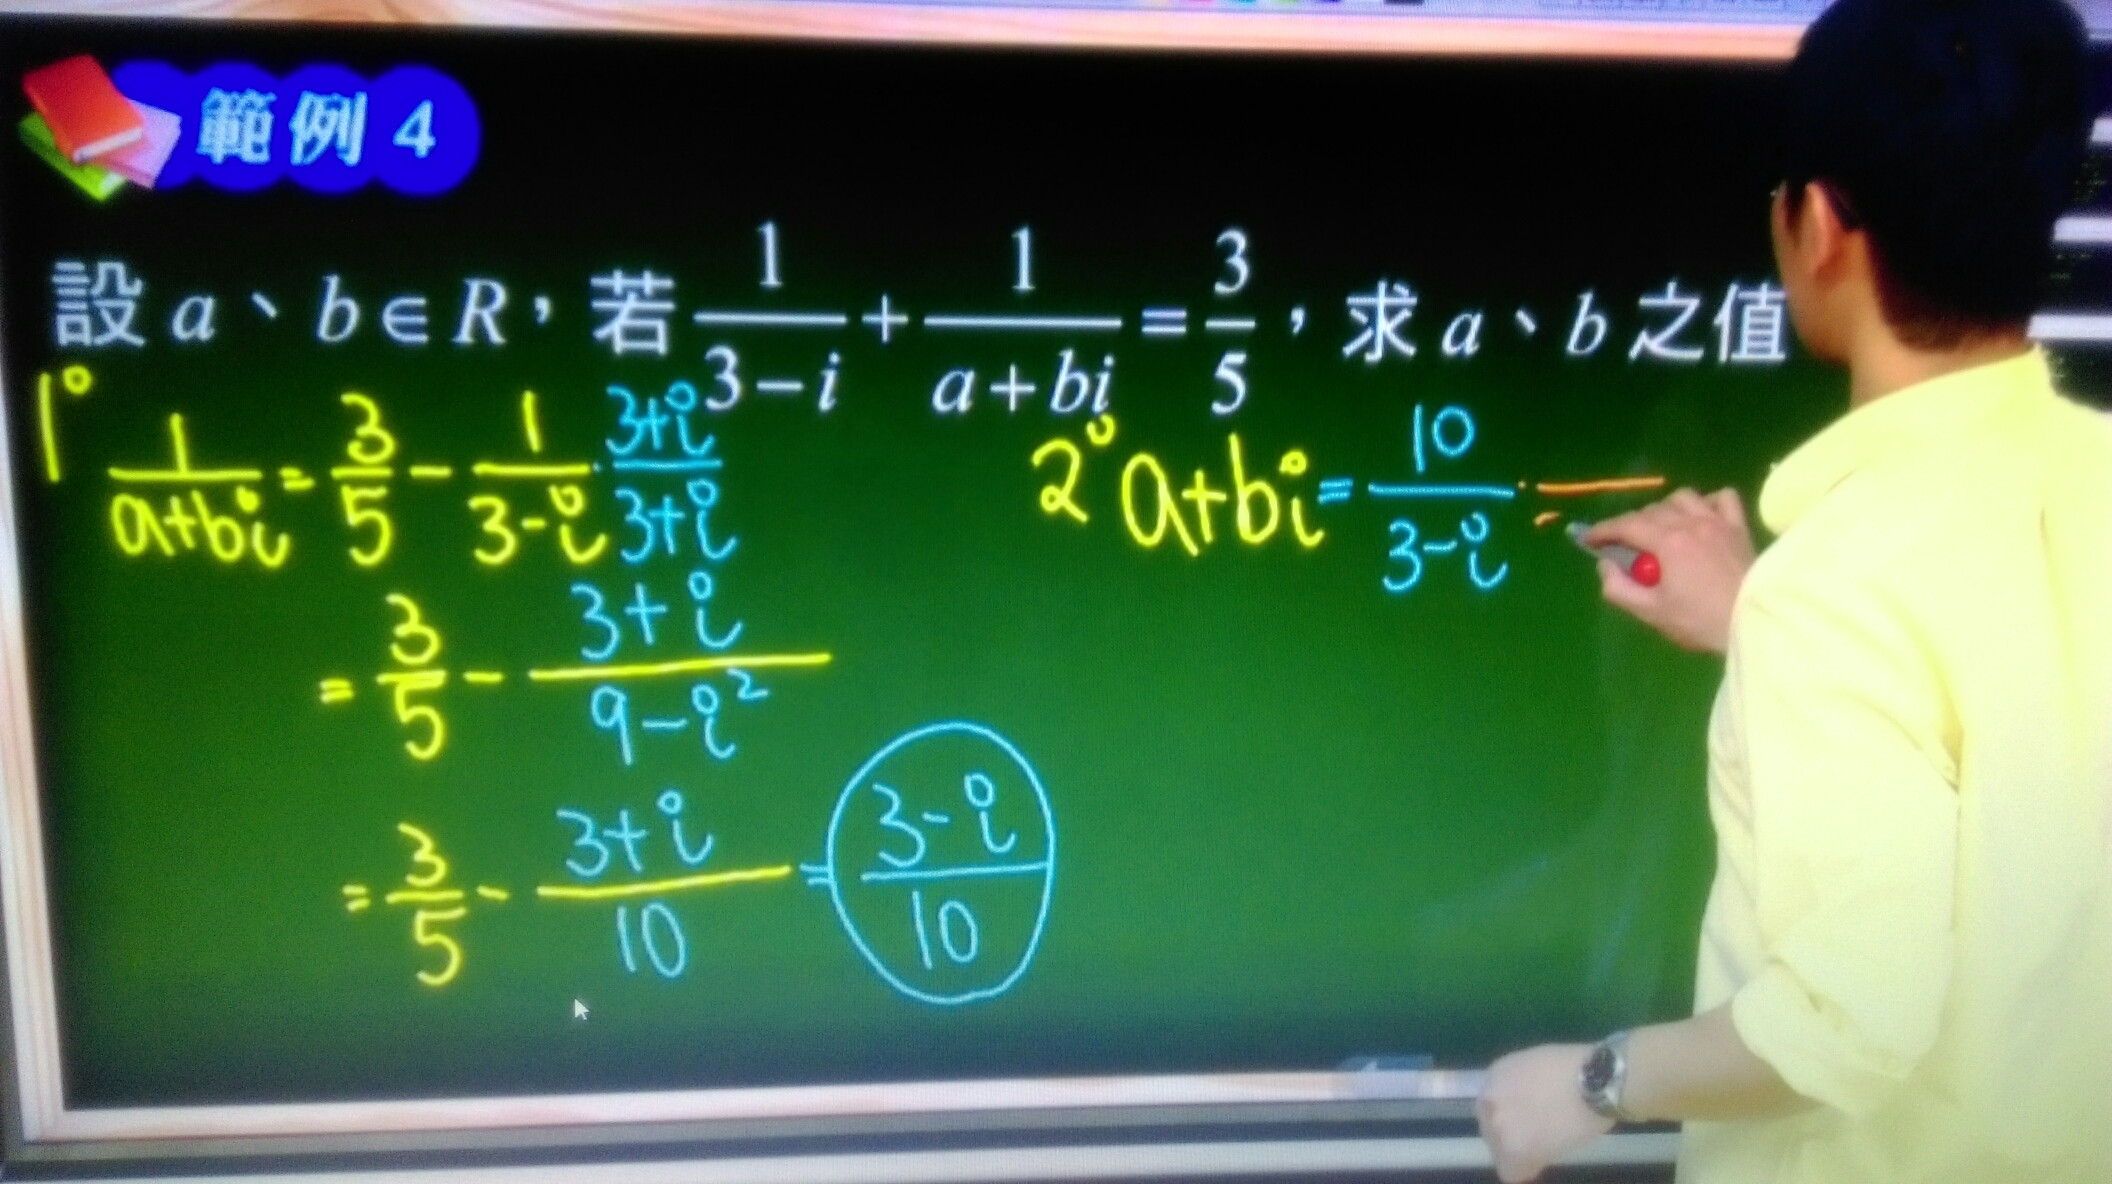 範例 4
設 a、b∈R，若 1/(3−i) + 1/(a+bi) = 3/5，求 a、b 之值
1° 1/(a+bi) = 3/5 − 1/(3-i) · (3+i)/(3+i)
= 3/5 − (3+i)/(9−i²)
= 3/5 − (3+i)/10 = (3-i)/10
2° a+bi = 10/(3-i) ·